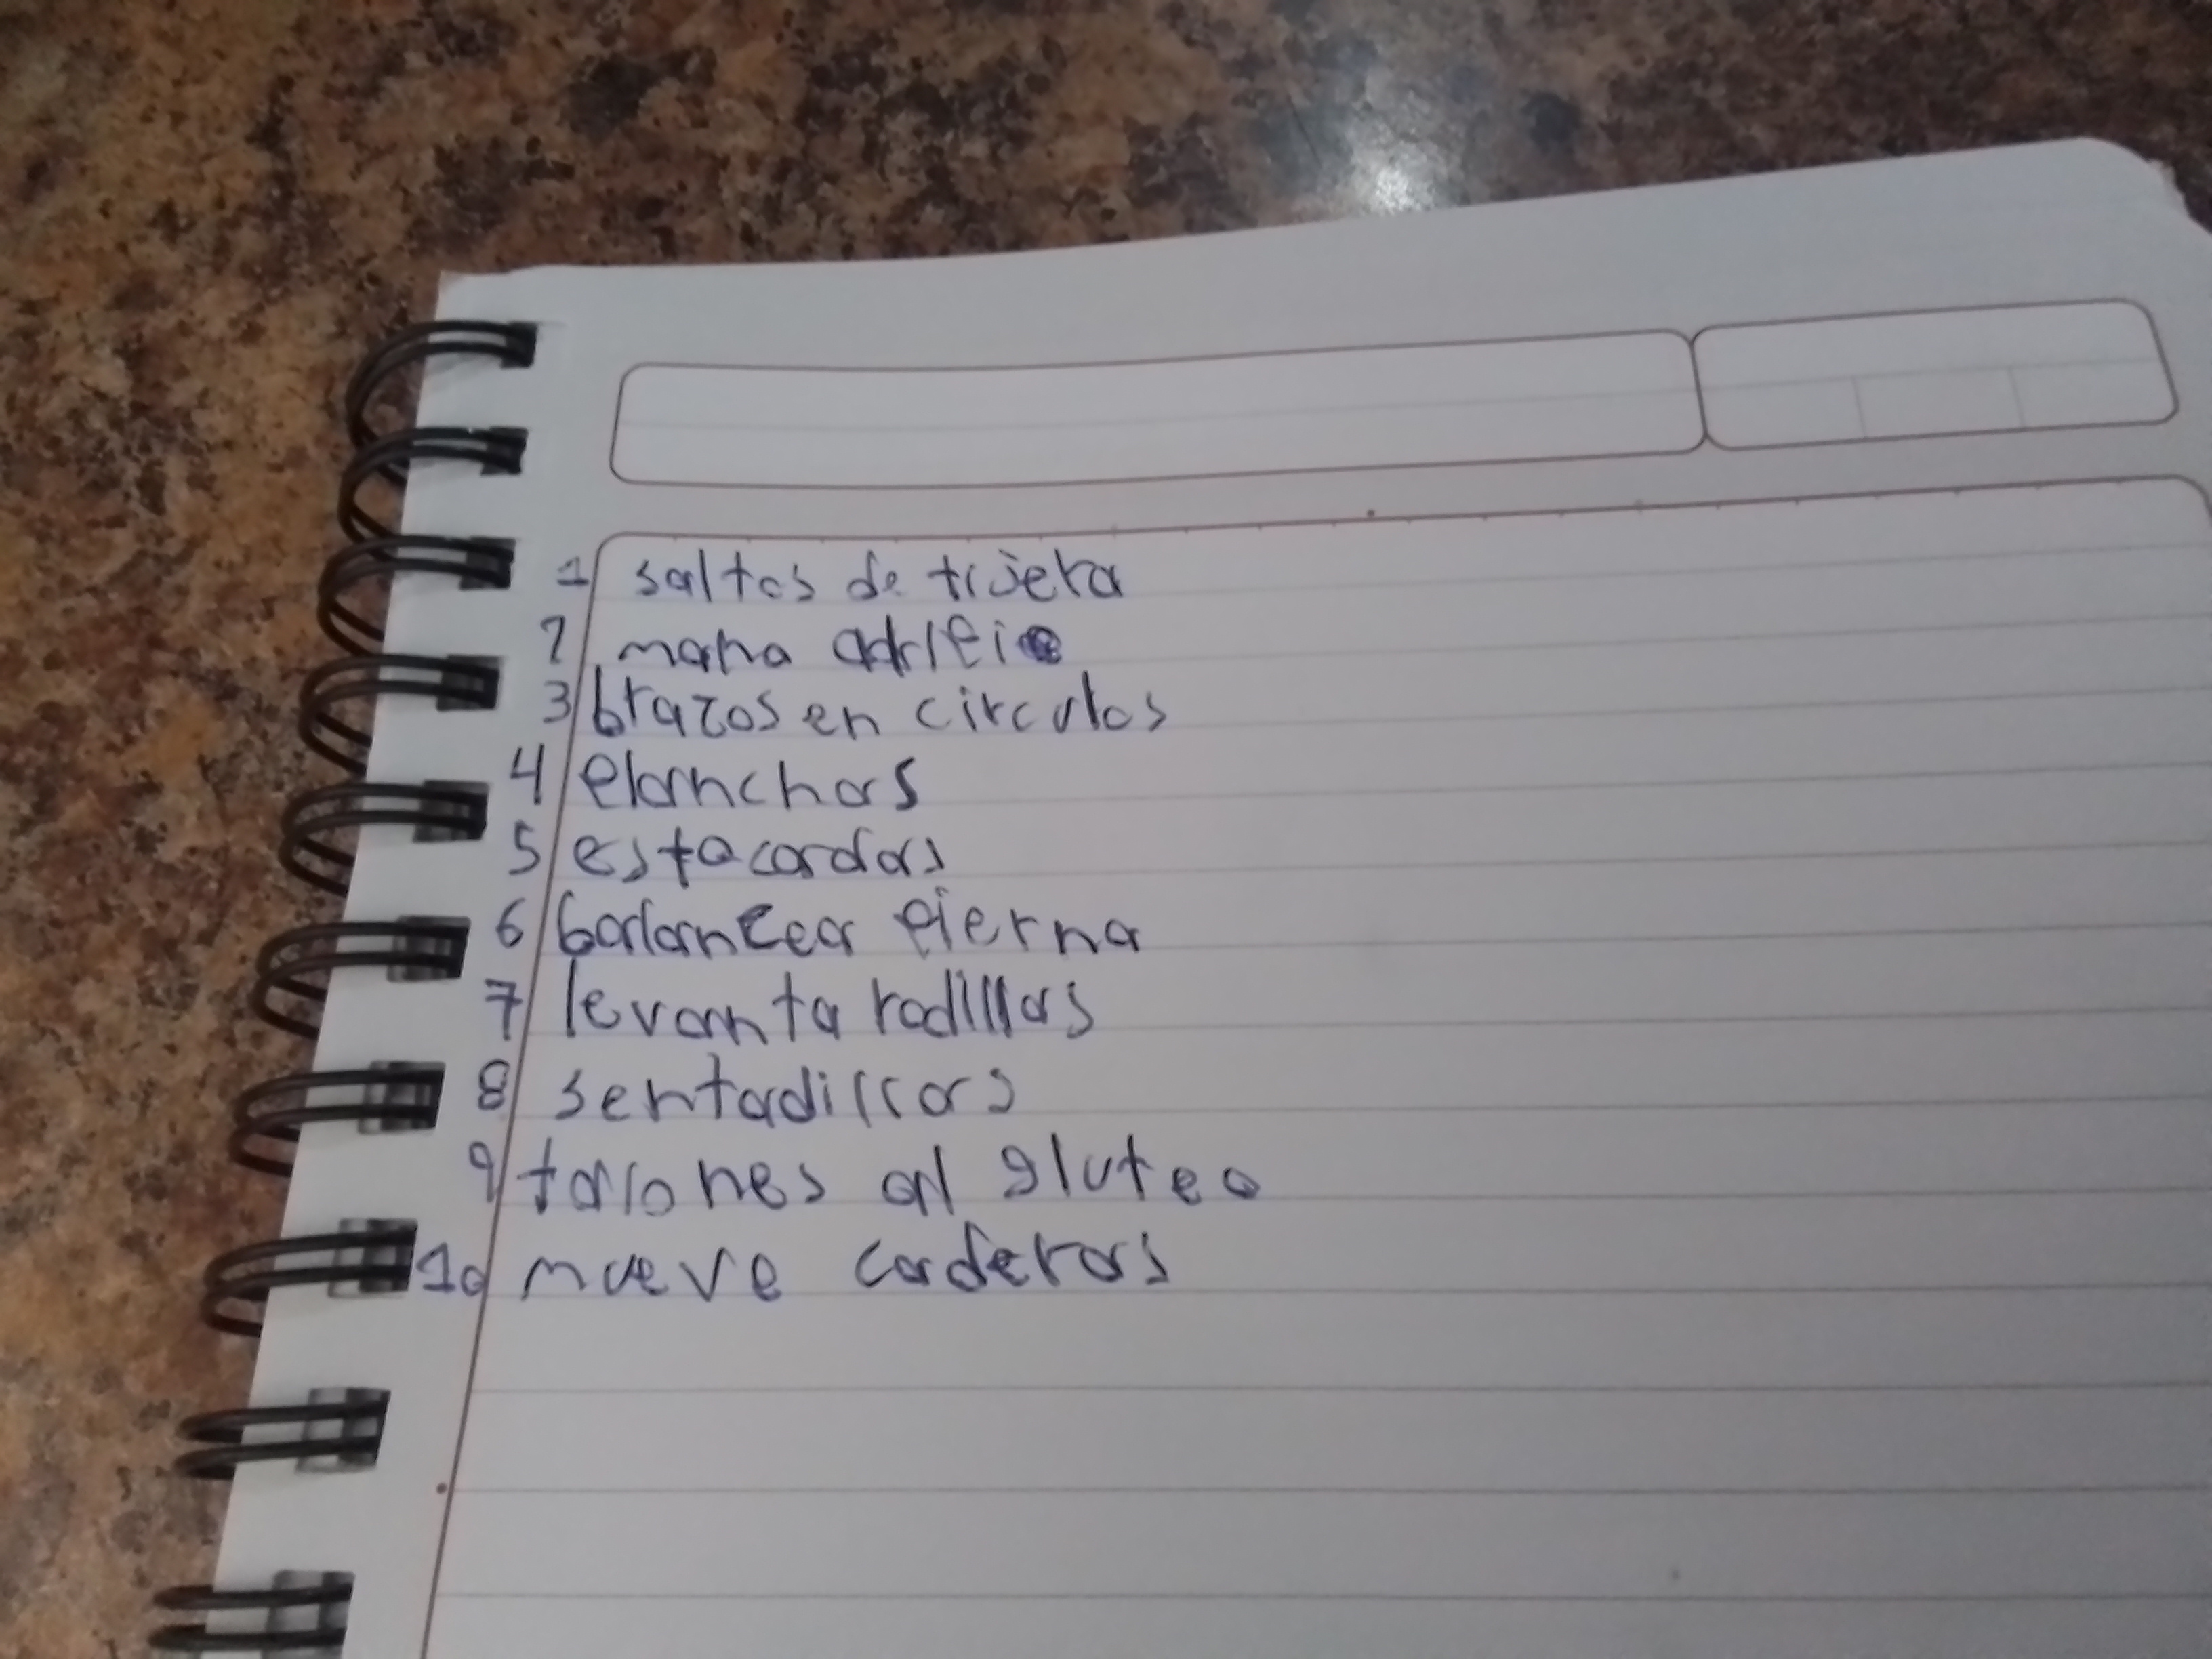 1 saltos de tijera
2 mano al pie
3 brazos en circulos
4 planchas
5 estocadas
6 balancea pierna
7 levanta rodillas
8 sentadillas
9 talones al gluteo
10 mueve caderas